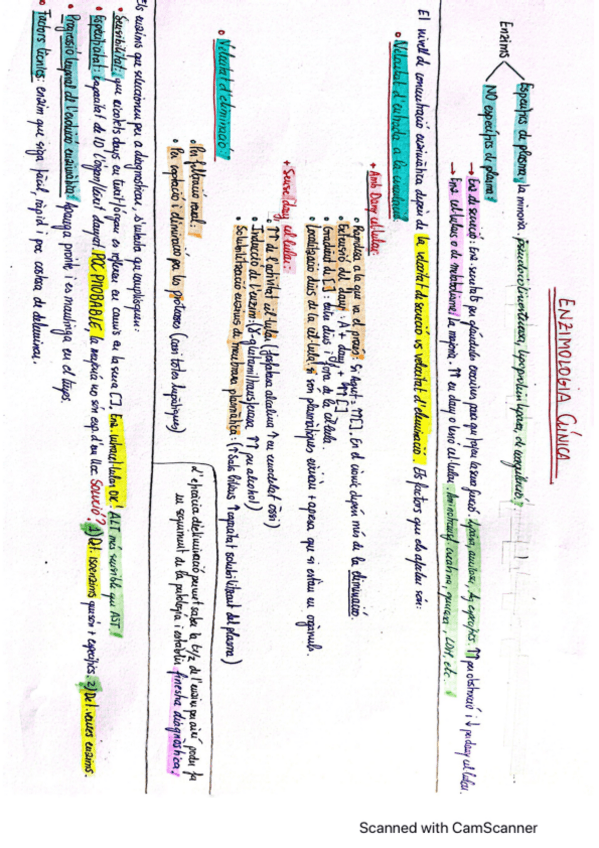 ENZIMOLOGIA CLÍNICA
Enzims
Específics de plasma: la minoria. Pseudocolinesterasa, lipoproteïn lipasa, de coagulació.
NO específics de plasma:
→ Enz de secreció: Enz secretats per glàndules exocrines, per funció. Lipasa, amilasa, específics. ↑↑ per obstrucció i ↓ per dany cel·lular.
→ Enz. cel·lulars o de metabolisme: la majoria. ↑↑ en dany o lisis cel·lular. Aminotransf, creatina, LDH, etc
El nivell de concentració enzimàtica depèn de la velocitat de secreció vs velocitat d'eliminació. Els factors que els afecten són:
• Velocitat d'entrada a la
+ Amb Dany cel·lular:
• Rapidesa a la que va el procés: Si agut: ↑↑[ ]. En el crònic depèn més de la eliminació.
• Extensió del dany: A + dany + ↑↑[ ]
• Gradient de [ ]: entre dins i fora de la cèl·lula.
• Localització dins de la cèl·lula: si són plasmàtiques eixiran + apresa que si estan en orgànuls.
+ Sense dany cel·lular:
• ↑↑ de l'activitat cel·lular (fosfatasa alcalina ↑ en ossi)
• Inducció de l'enzim: (γ-glutamiltransferasa, ↑↑ per alcohol)
• Solubilització enzims de membrana plasmàtica: (↑ Sals biliars ↑ capacitat solubilitzant del plasma)
• Velocitat d'eliminació?
• Per filtració renal:
• Per captació i eliminació per les proteases (casi totes hepàtiques)
d'eficàcia d'eliminació permet saber la t1/2 de l'enzim per així poder fer
un seguiment de la patologia i establir finestra diagnòstica!
Els enzims que seleccionem per a diagnosticar, s'intenta que complisquen:
• Sensibilitat: que xicotets danys en teixit/òrgan es reflexen en canvis en la seua [ ]. Enz. intracel·lular OK! ALT més sensible que AST!
• Especificitat: capacitat de ID l'òrgan/lloc danyat. POC PROBABLE, la majoria no són esp d'un lloc. Solució? 1) Qt. isoenzims que són + específics. 2) Det. varies enzims.
• Progressió temporal de l'evolució enzimàtica: Aparega pronte i es mantinga en el temps
• Factors tècnics: enzim que siga fàcil, ràpid i poc costosa de determinar.
Scanned with CamScanner